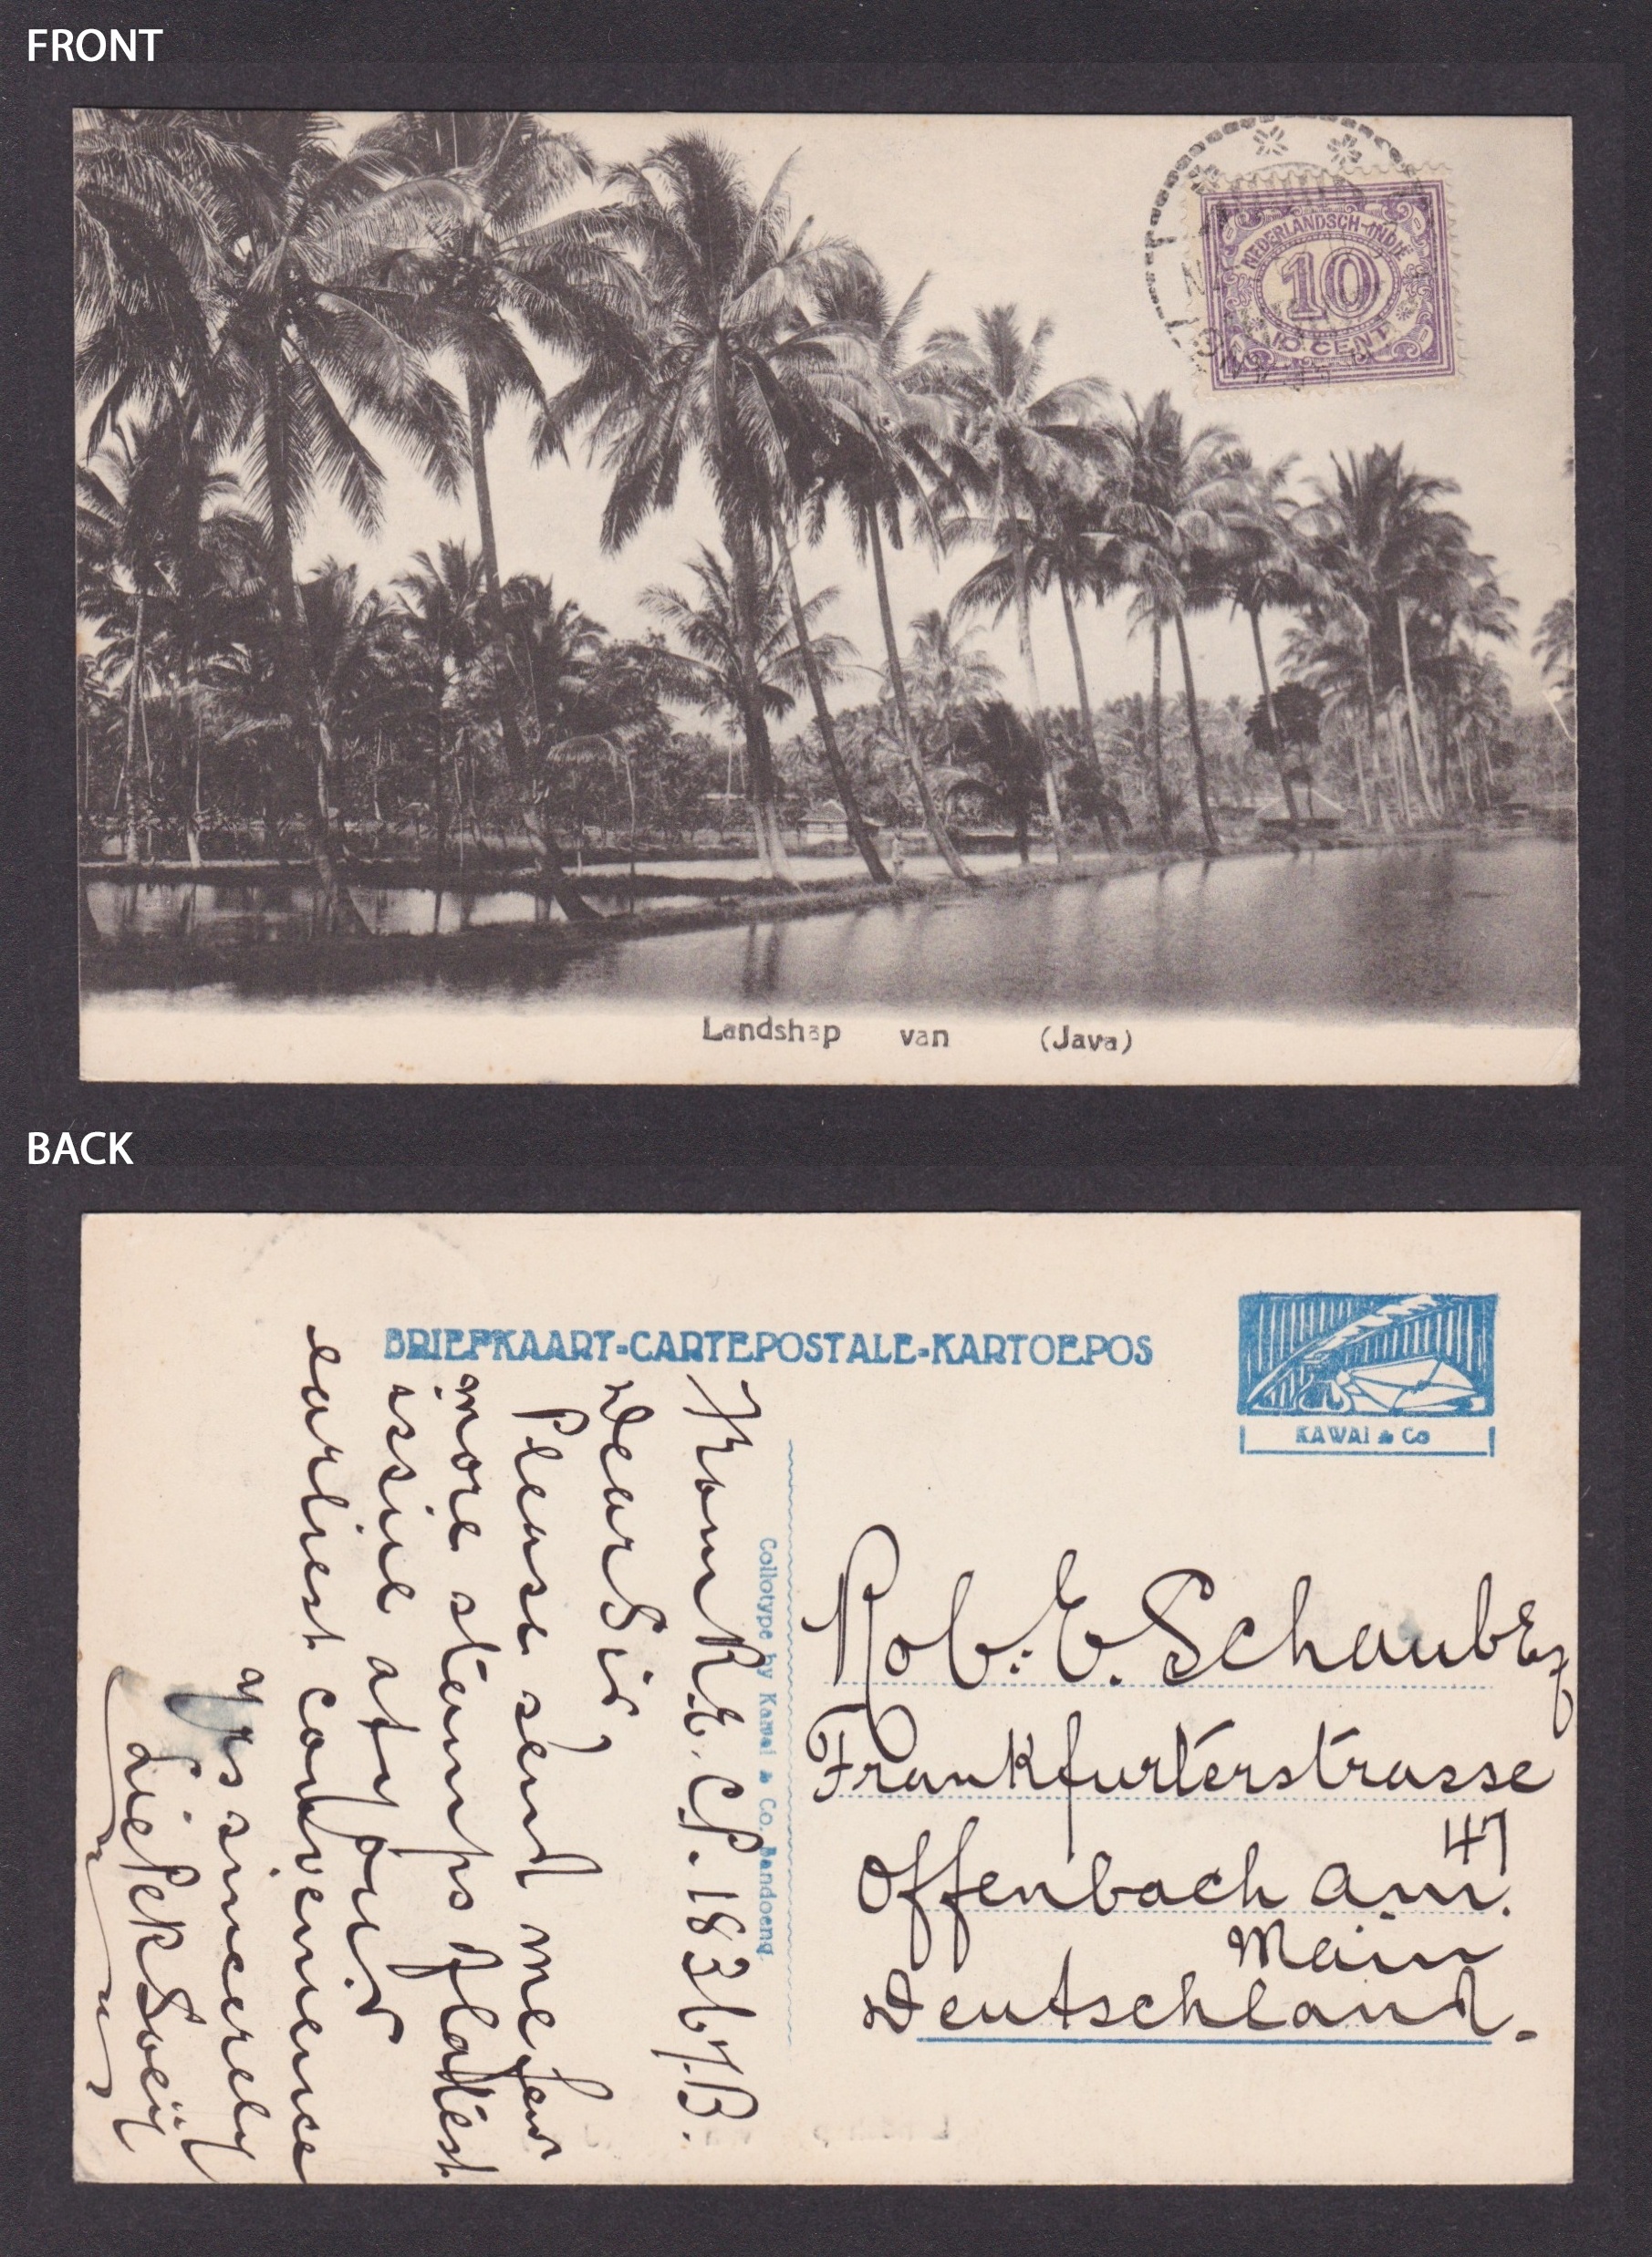 FRONT
NEDERLANDSCH-INDIE
10
10 CENT
Landshap van (Java)
BACK
BRIEFKAART-CARTEPOSTALE-KARTOEPOS
KAWAI & Co
Collotype by Kawai & Co. Bandoeng.
From R.E.C.P. 1836/B.
Dear Sir,
Please send me few
more stamps flatest
issue at your
earliest convenience
Yrs sincerely
Rob. E. Schaub Esq
Frankfurterstrasse
47
Offenbach am.
Main
Deutschland.